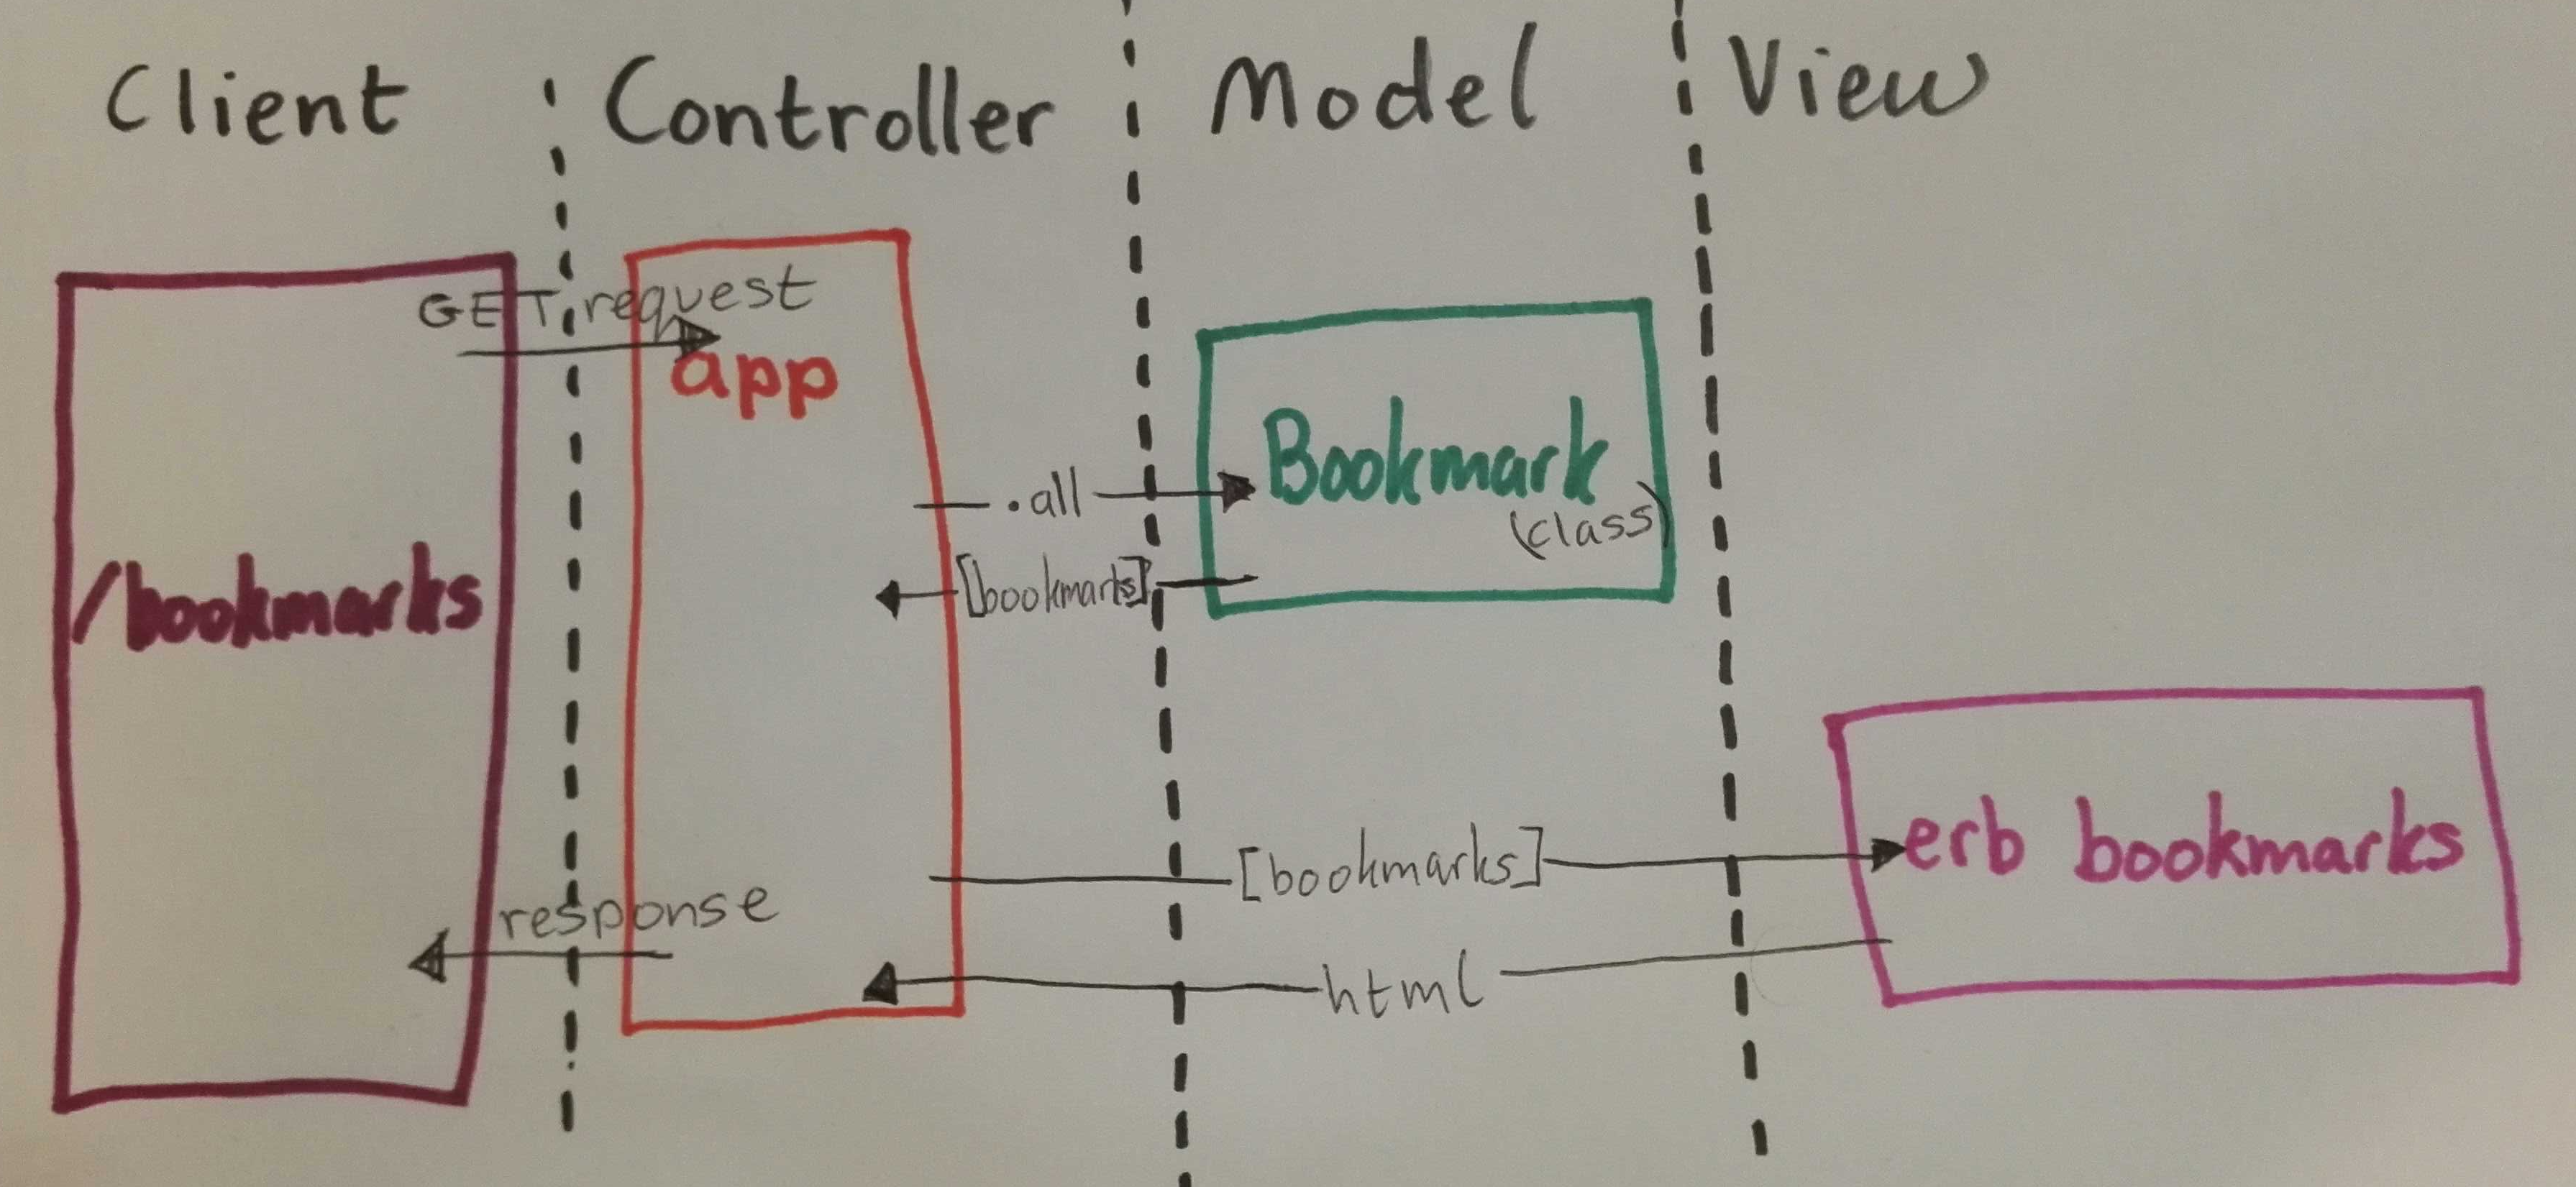 Client
Controller
Model
View
GET request
app
.all
Bookmark
(class)
[bookmarks]
/bookmarks
[bookmarks]
erb bookmarks
response
html